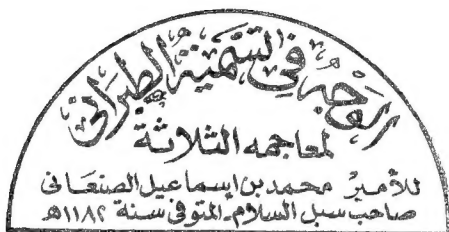 الوجه في تسمية الطبراني
لمعاجمه الثلاثة
للأمير محمد بن إسماعيل الصنعاني
صاحب سبل السلام. المتوفى سنة ١١٨٢هـ